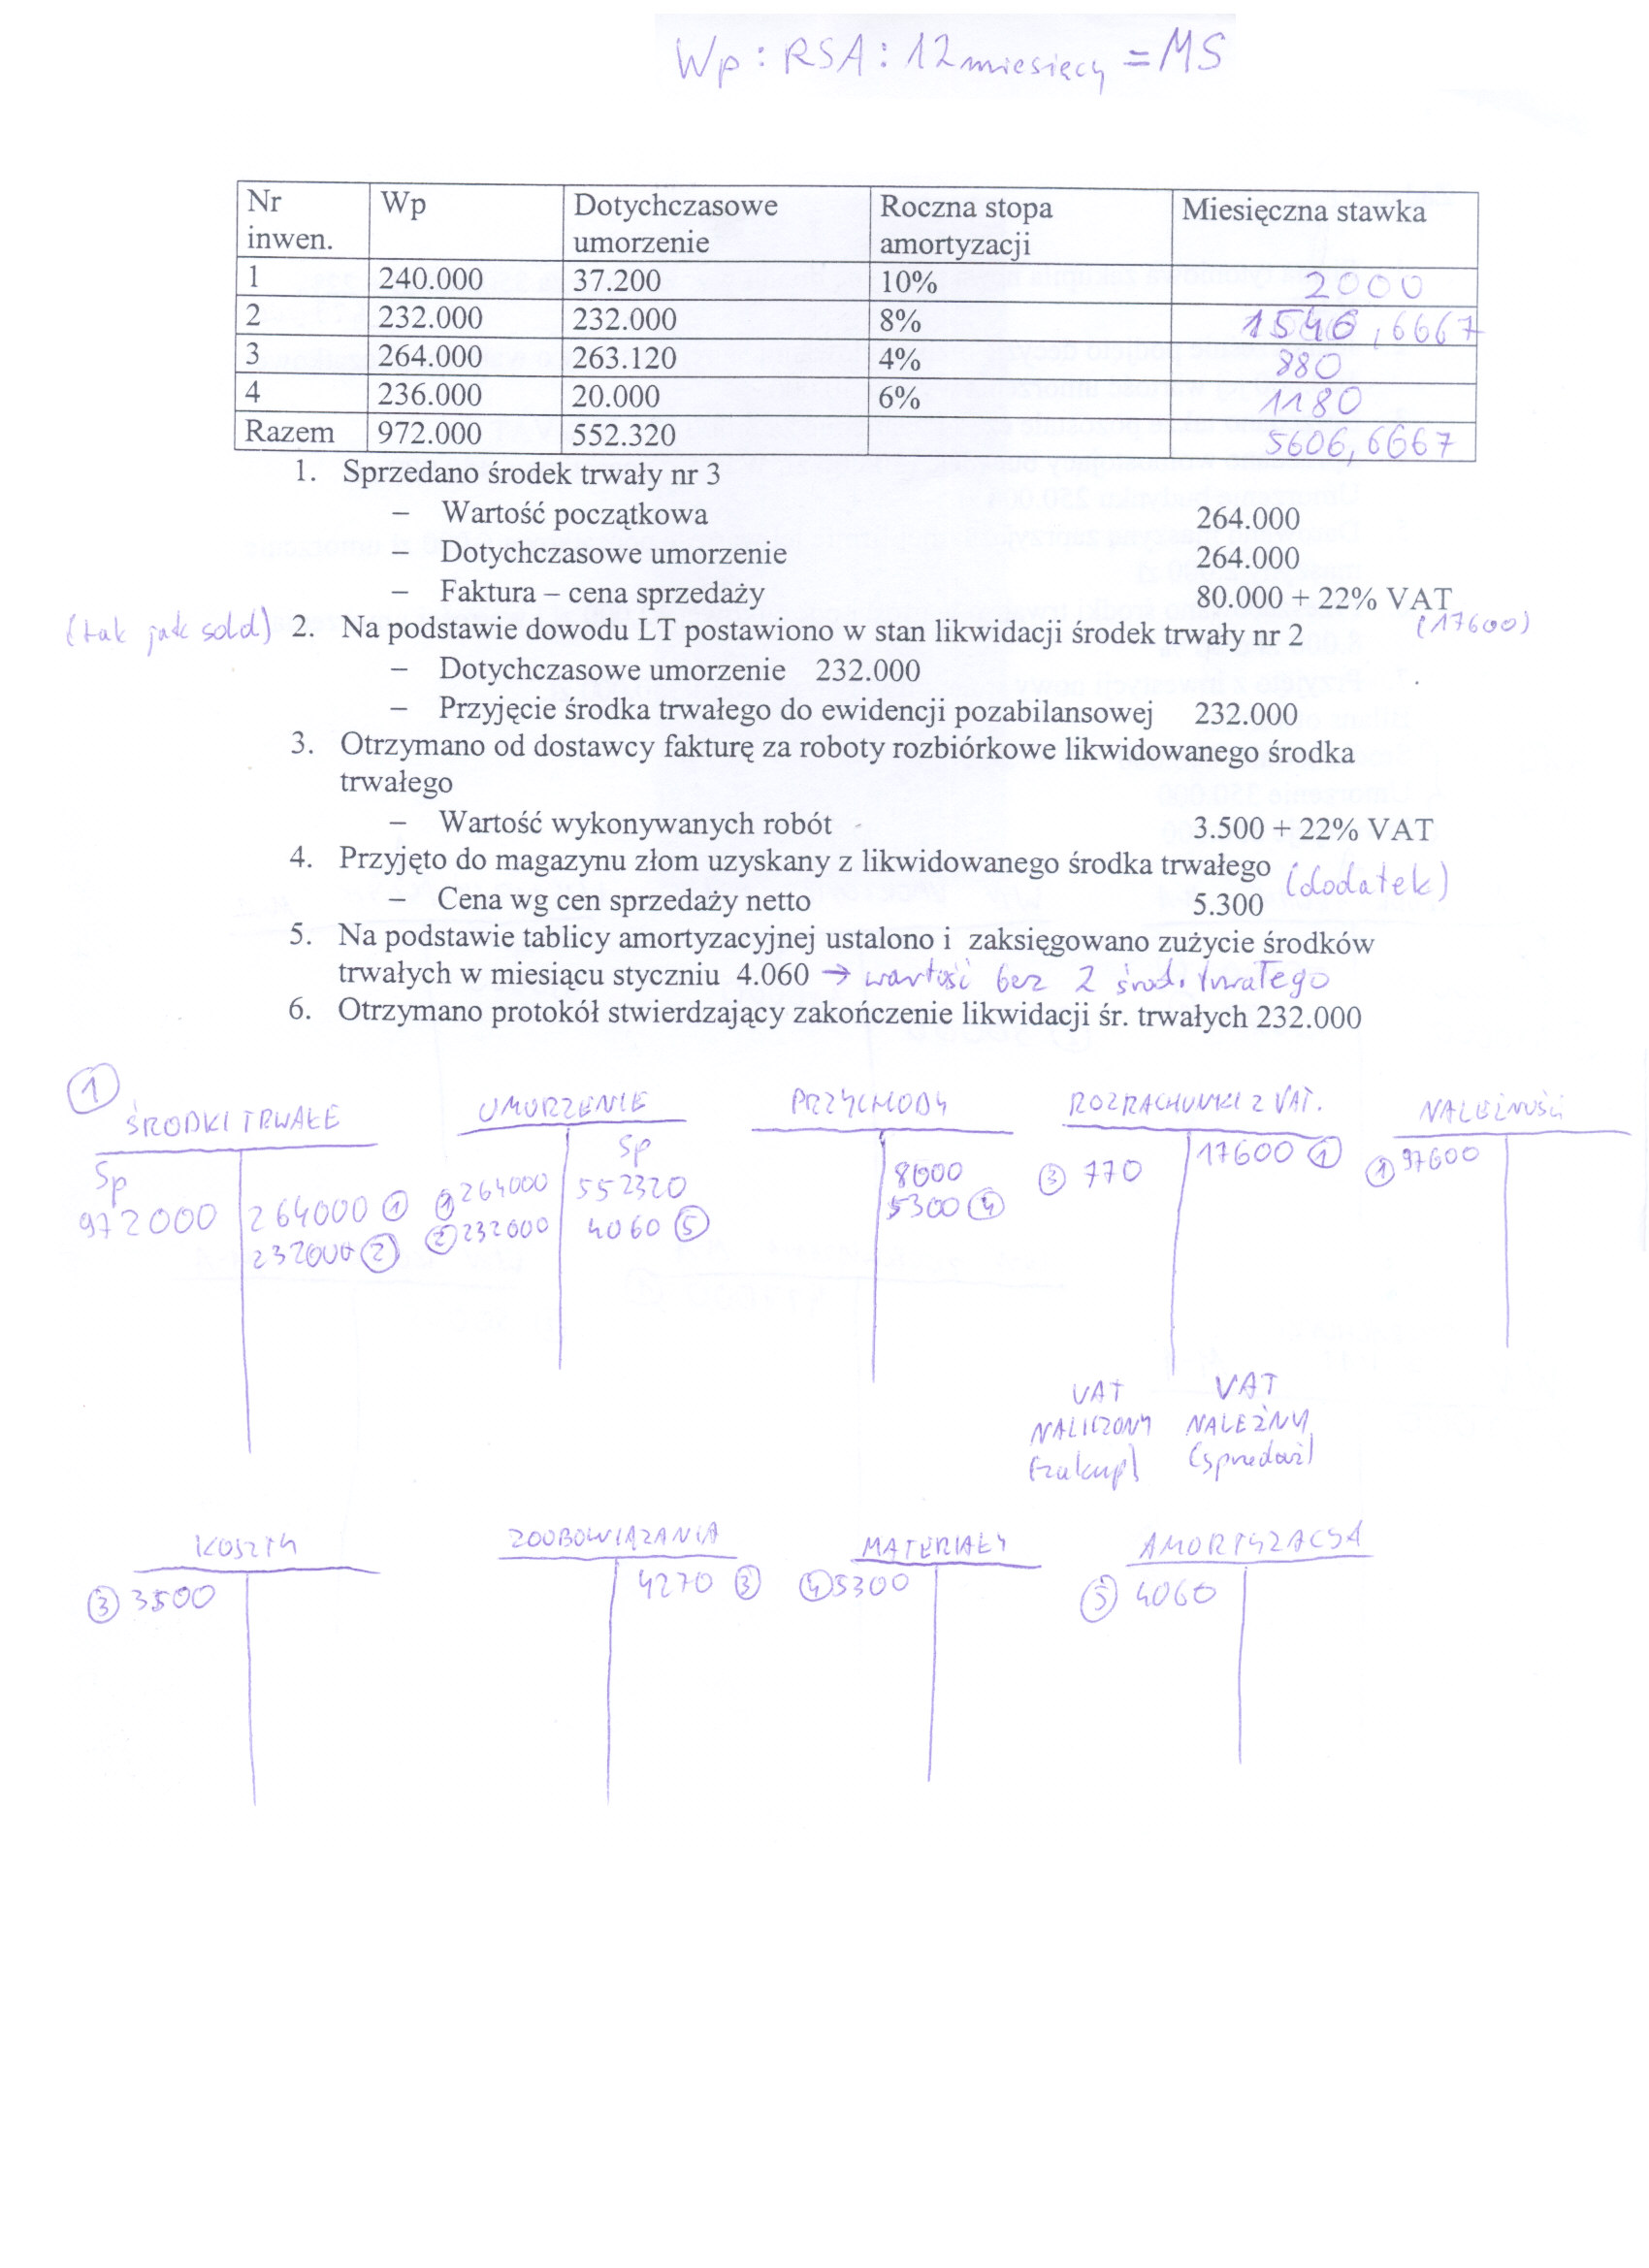 Wp : RSA : 12 miesięcy = MS
Nr inwen. | Wp | Dotychczasowe umorzenie | Roczna stopa amortyzacji | Miesięczna stawka
1 | 240.000 | 37.200 | 10% | 2000
2 | 232.000 | 232.000 | 8% | 1546,6667
3 | 264.000 | 263.120 | 4% | 880
4 | 236.000 | 20.000 | 6% | 1180
Razem | 972.000 | 552.320 | | 5606,6667
1. Sprzedano środek trwały nr 3
– Wartość początkowa 264.000
– Dotychczasowe umorzenie 264.000
– Faktura – cena sprzedaży 80.000 + 22% VAT
(17600)
(tak jak sold) 2. Na podstawie dowodu LT postawiono w stan likwidacji środek trwały nr 2
– Dotychczasowe umorzenie 232.000
– Przyjęcie środka trwałego do ewidencji pozabilansowej 232.000
3. Otrzymano od dostawcy fakturę za roboty rozbiórkowe likwidowanego środka
trwałego
– Wartość wykonywanych robót - 3.500 + 22% VAT
4. Przyjęto do magazynu złom uzyskany z likwidowanego środka trwałego (dodatek)
– Cena wg cen sprzedaży netto 5.300
5. Na podstawie tablicy amortyzacyjnej ustalono i zaksięgowano zużycie środków
trwałych w miesiącu styczniu 4.060 → wartość bez 2 środ. trwałego
6. Otrzymano protokół stwierdzający zakończenie likwidacji śr. trwałych 232.000
①
ŚRODKI TRWAŁE
Sp
972000 | 264000 ①
232000 ②
UMORZENIE
Sp
① 264000 | 552320
② 232000 | 4060 ⑤
PRZYCHODY
8000
5300 ④
ROZRACHUNKI Z VAT.
③ 770 | 17600 ①
VAT NALICZONY (zakup)
VAT NALEŻNY (sprzedaż)
NALEŻNOŚCI
① 97600
KOSZTY
③ 3500
ZOOBOWIĄZANIA
4270 ③
MATERIAŁY
④ 5300
AMORTYZACJA
⑤ 4060